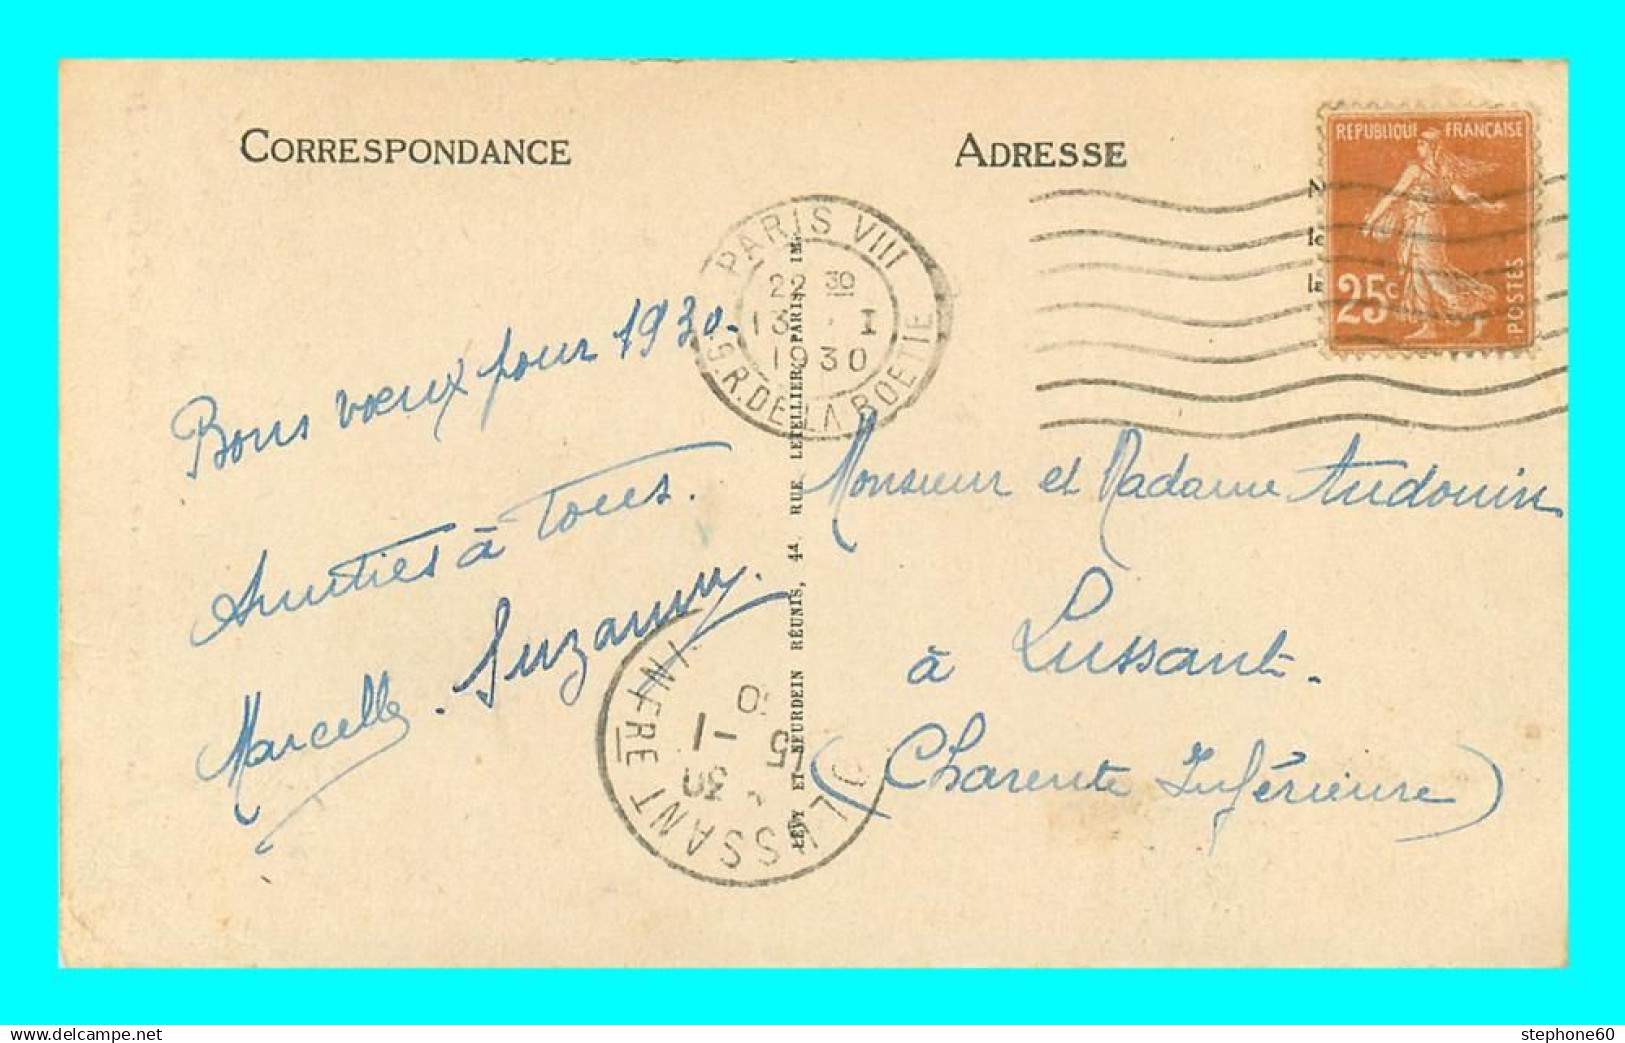 CORRESPONDANCE
ADRESSE
REPUBLIQUE FRANÇAISE
25c
POSTES
le
la
PARIS VIII
22 30
13 · I
1930
R. DE LA BOETIE
Bons vœux pour 1930.
Amitiés à tous.
Marcelle. Suzanne.
LEVY ET NEURDEIN RÉUNIS, 44, RUE LETELLIER, PARIS IM.
Monsieur et Madame Audouin
à Lussant.
(Charente Inférieure)
LUSSANT
INFRE
15
1
30
stephone60